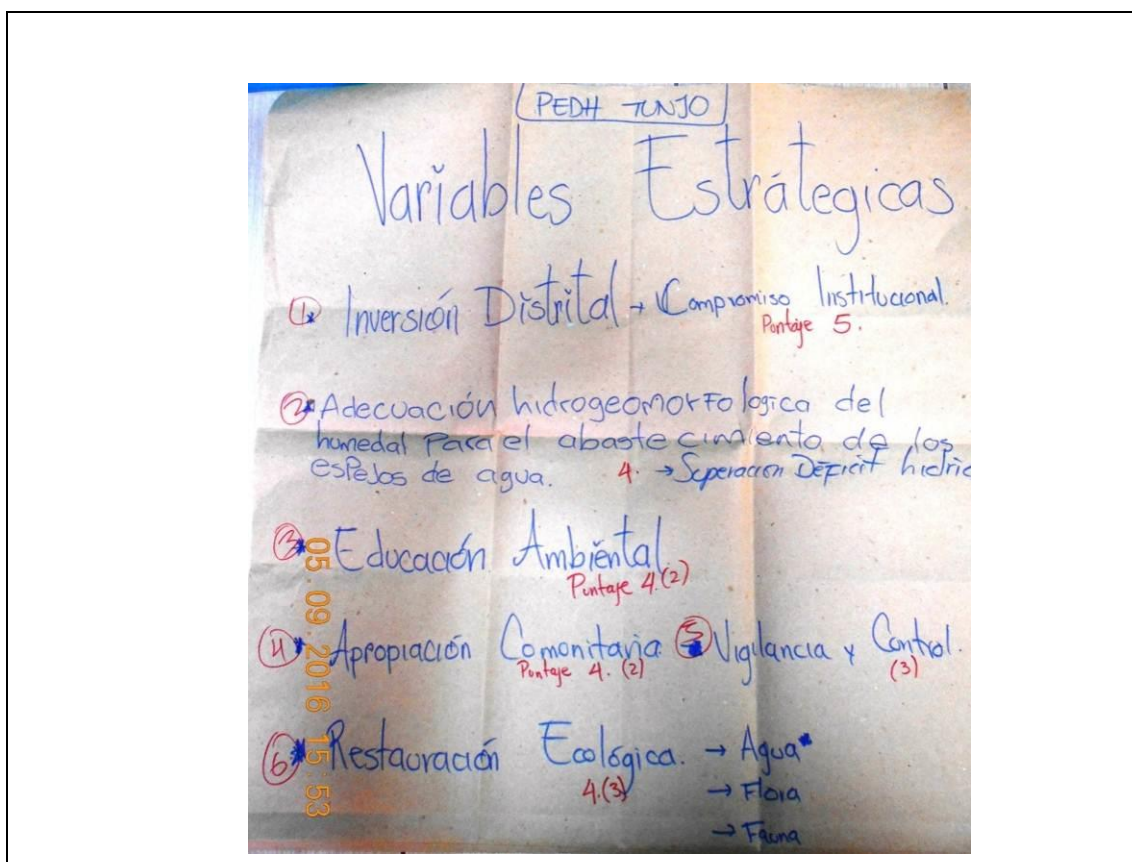 PEDH TUNJO
Variables Estrátegicas
1* Inversión Distrital → Compromiso Institucional.
Pontaje 5.
2* Adecuación hidrogeomorfologica del
humedal Para el abastecimiento de los
espejos de agua. 4. → Superación Déficit hídric
3* Educación Ambiental
Puntaje 4.(2)
4* Apropiación Comonitaria 5 Vigilancia y Control.
Puntaje 4. (2) (3)
6* Restauración Ecológica. → Agua*
4.(3) → Flora
→ Fauna
05.09.2016 15 53